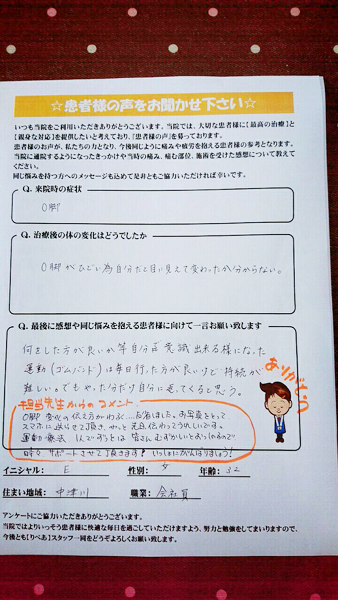 ☆患者様の声をお聞かせ下さい☆
いつも当院をご利用いただきありがとうございます。当院では、大切な患者様に【最高の治療】と
【親身な対応】を提供したいと考えており、『患者様の声』を募っております。
患者様のお声が、私たちの力となり、今後同じように痛みや疲労を抱える患者様の参考となります。
当院に通院するようになったきっかけや当時の痛み、痛む部位、施術を受けた感想について教えて
ください。
同じ悩みを持つ方へのメッセージも込めて是非ともご協力いただければ幸いです。
Q. 来院時の症状
O脚
Q. 治療後の体の変化はどうでしたか
O脚がひどい為自分だと目に見えて変わったか分からない。
Q. 最後に感想や同じ悩みを抱える患者様に向けて一言お願い致します
何をした方が良いか等自分自身意識出来る様になった
運動(ゴムバンド)は毎日行った方が良いけど持続が
難しい。でもやった分だけ自分に返ってくると思う。
ありがとう
担当先生からのコメント
O脚 変化の伝え方が
スマホに送らせて頂き、やっと
運動療法、1人でおうとは皆さんむずかしいとおっしゃるので
時々サポートさせて頂きます!いっしょにがんばりましょう!
イニシャル: E 性別: 女 年齢: 32
住まい地域: 中津川 職業: 会社員
アンケートにご協力いただきありがとうございます。
当院ではよりいっそう患者様に快適な毎日を過ごしていただけますよう、努力と勉強をしてまいりますので、
今後とも【りべあ】スタッフ一同をどうぞよろしくお願い致します。